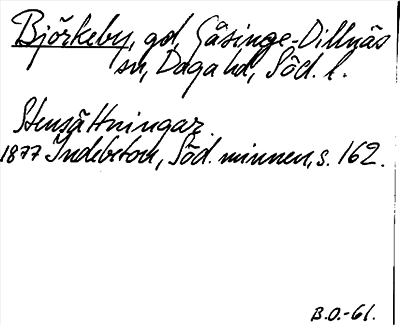 Björkeby, gd, Gåsinge-Dillnäs
sn, Daga hd, Söd. l.
Stensättningar.
1877 Indebetou, Söd. minnen, s. 162.
B.O.-61.